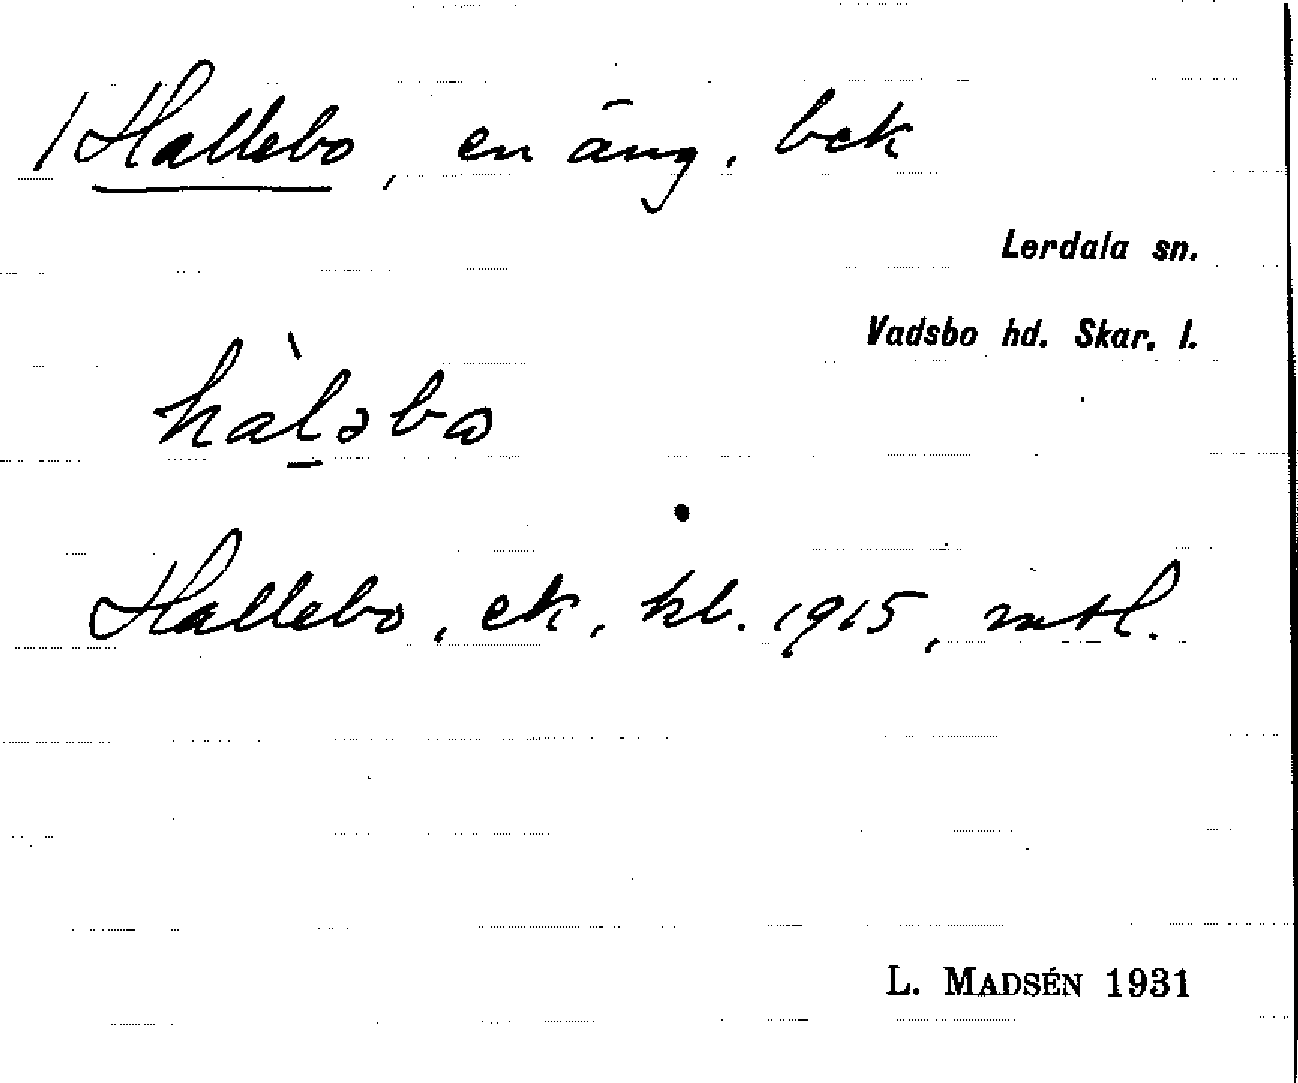 / Hallebo, en äng, bek
Lerdala sn.
Vadsbo hd. Skar. l.
hàlǝbω
Hallebo, ek, kb. 1915, mtl.
L. MADSÉN 1931